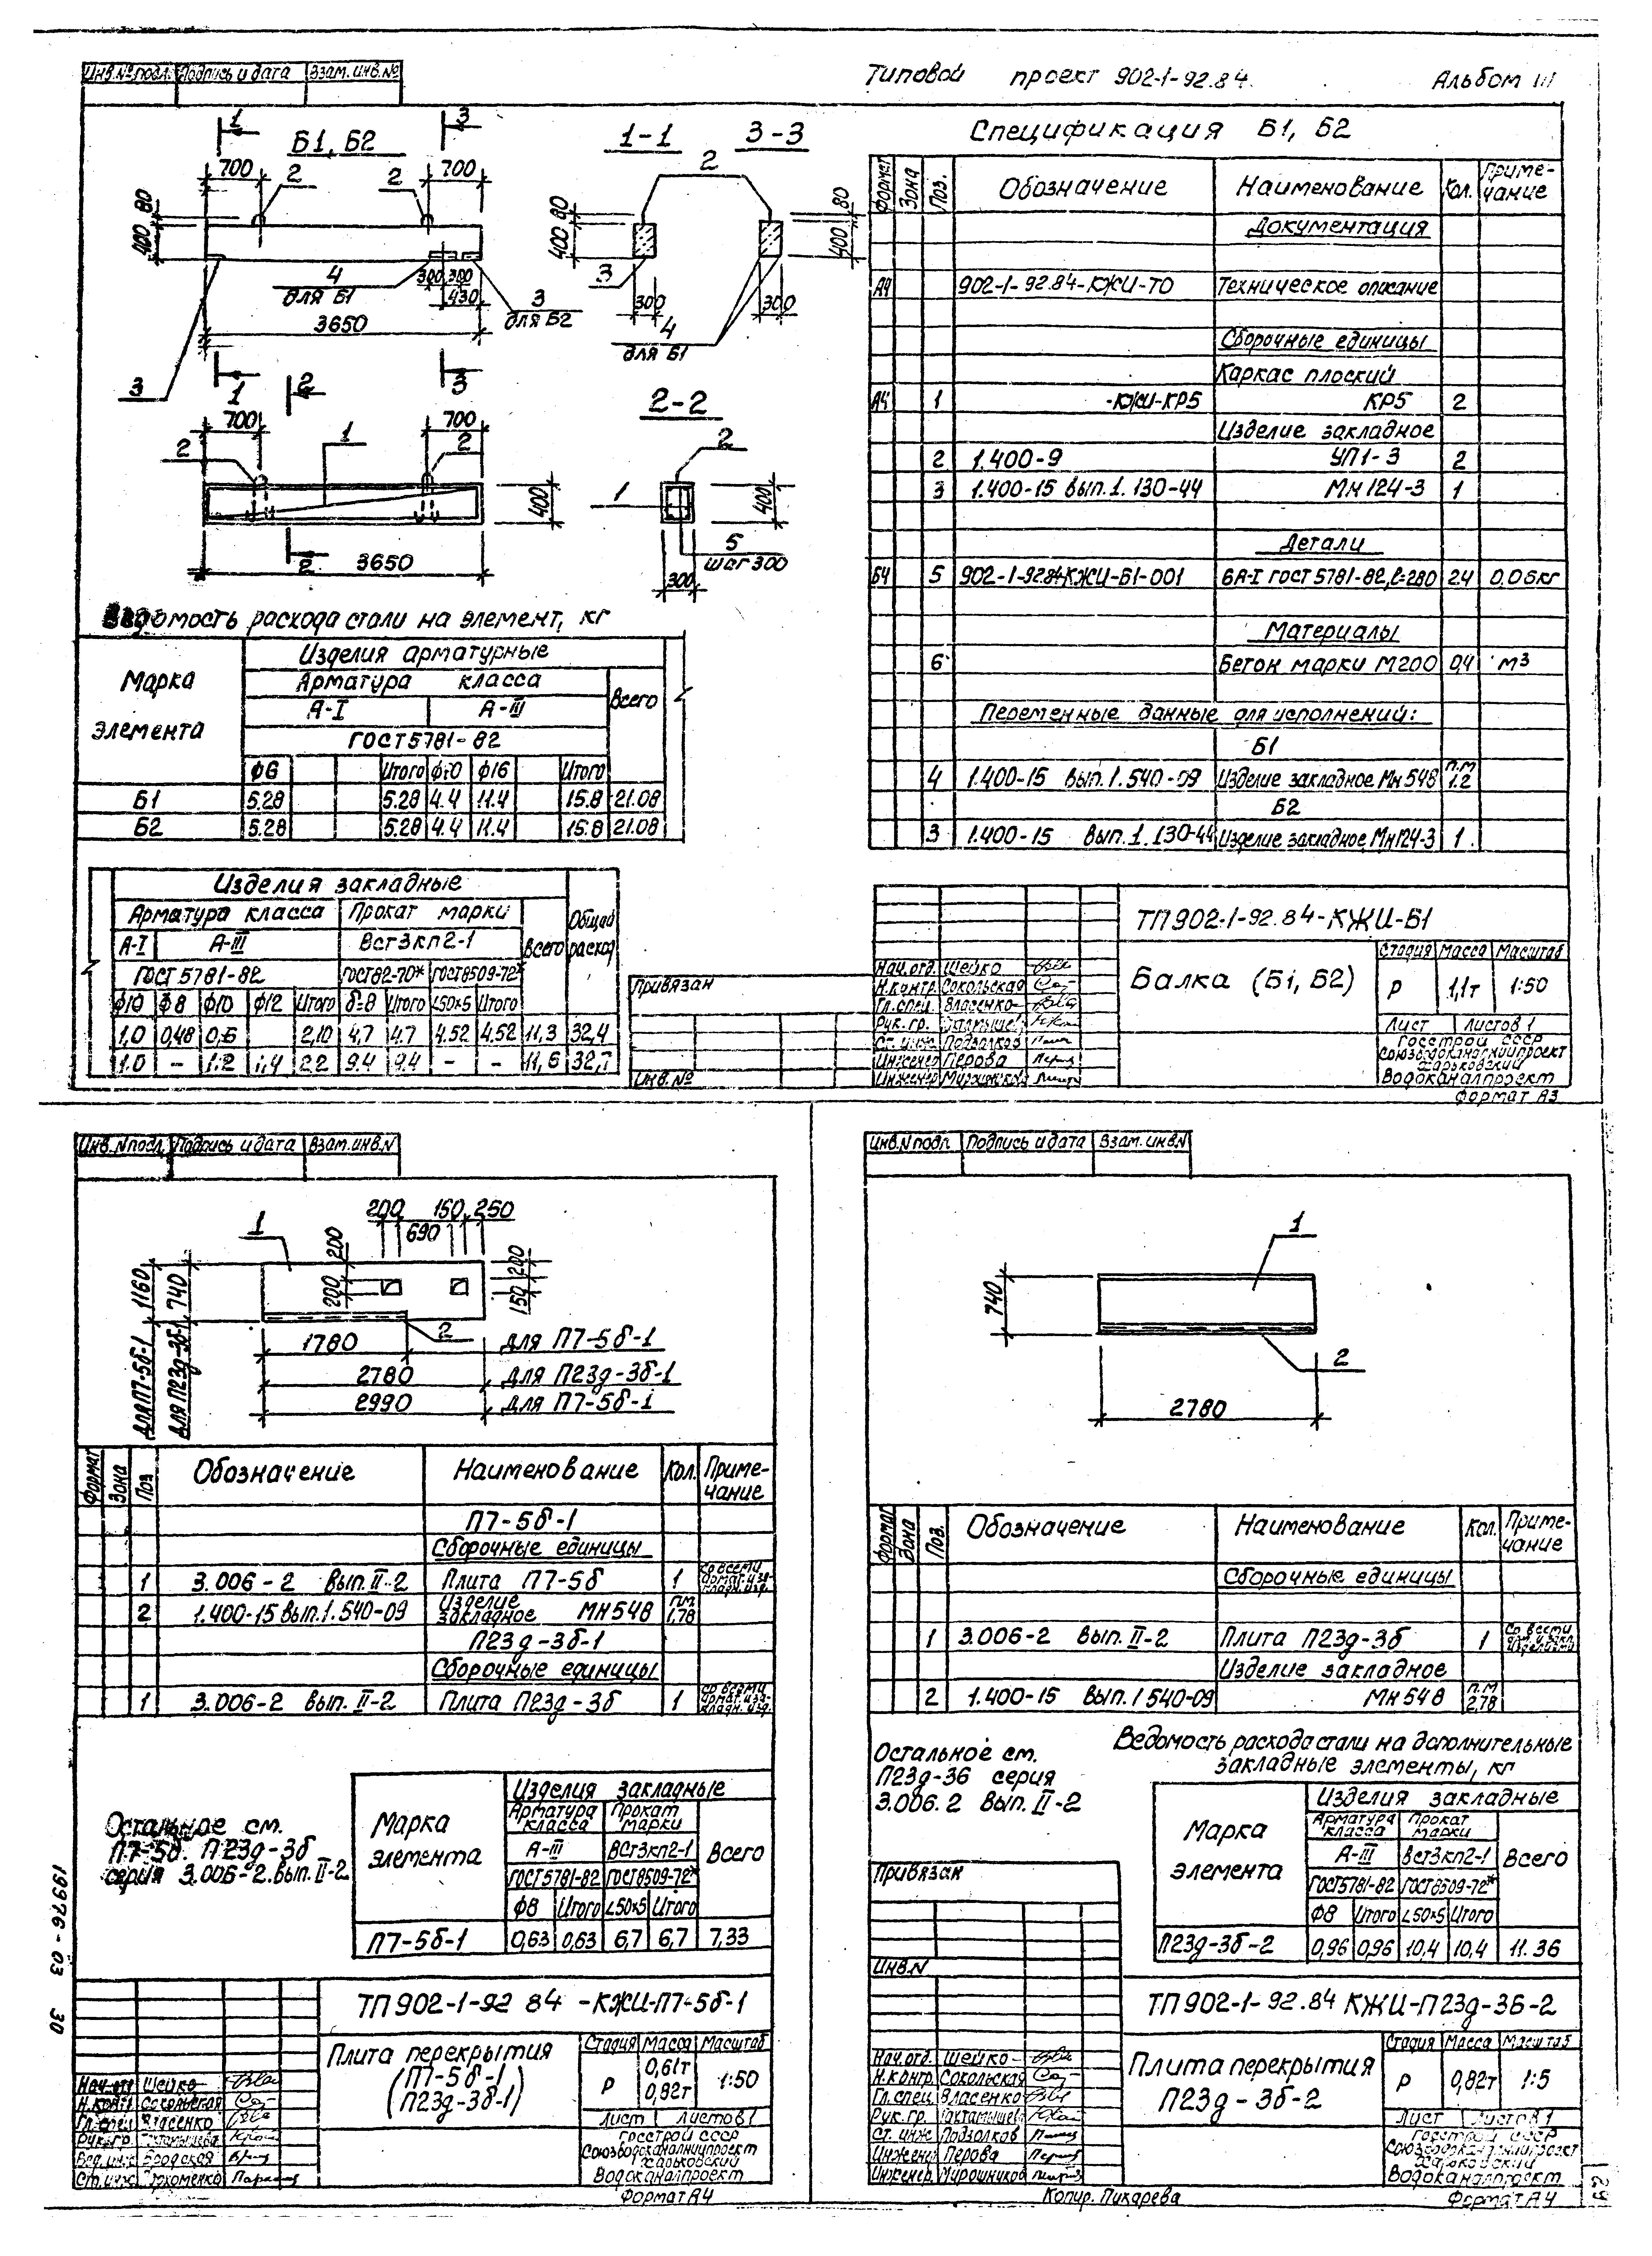 Инв.№ подл. Подпись и дата Взам. инв.№
Типовой проект 902-1-92.84. Альбом III
Б1, Б2
1 3
700 2 2 700
80
400
4
для Б1
300 300
430
3
для Б2
3650
3
1 2 3
1-1 3-3
2
80 80
400 400
3
300 300
4
для Б1
700 1 700
2 2
400
3650
2
2-2
2
1
400
5
шаг 300
300
Спецификация Б1, Б2
Формат Зона Поз. Обозначение Наименование Кол. Приме-чание
Документация
А4 902-1-92.84-КЖИ-ТО Техническое описание
Сборочные единицы
Каркас плоский
А4 1 -КЖИ-КР5 КР5 2
Изделие закладное
2 1.400-9 УП1-3 2
3 1.400-15 вып.1.130-44 МН124-3 1
Детали
Б4 5 902-1-92.84-КЖИ-Б1-001 6А-I ГОСТ 5781-82, ℓ=280 24 0,06кг
Материалы
6 Бетон марки М200 0,4 м3
Переменные данные для исполнений:
Б1
4 1.400-15 вып.1.540-09 Изделие закладное Мн548 п.м 1.2
Б2
3 1.400-15 вып.1.130-44 Изделие закладное Мн124-3 1
Ведомость расхода стали на элемент, кг
Марка элемента
Изделия арматурные
Арматура класса
Всего
А-I А-III
ГОСТ 5781-82
ф6 Итого ф10 ф16 Итого
Б1 5.28 5.28 4.4 11.4 15.8 21.08
Б2 5.28 5.28 4.4 11.4 15.8 21.08
Изделия закладные
Арматура класса Прокат марки Всего Общий расход
А-I А-III Вст3кп2-1
ГОСТ 5781-82 ГОСТ82-70* ГОСТ8509-72*
ф10 ф8 ф10 ф12 Итого δ=8 Итого L50x5 Итого
1.0 0,48 0,6 2,10 4,7 4.7 4.52 4.52 11,3 32,4
1.0 – 1.2 1,4 2.2 9.4 9.4 – – 11,6 32,7
Привязан
Инв.№
ТП 902-1-92.84-КЖИ-Б1
Балка (Б1, Б2)
Стадия Масса Масштаб
Р 1,1т 1:50
Лист Листов 1
Госстрой СССР
Союзводоканалниипроект
Харьковский
Водоканалпроект
Формат А3
Нач.отд. Шейко
Н.контр. Сокольская
Гл.спец. Власенко
Рук.гр.
Ст.инж. Подзолков
Инженер Перова
Инженер
Инв.№ подл. Подпись и дата Взам.инв.№
200 150 250
690
1
200
200
200
150
1160 740
для П7-5б-1
для П23д-3б-1
2
1780 для П7-5б-1
2780 для П23д-3б-1
2990 для П7-5б-1
Формат Зона Поз Обозначение Наименование Кол. Приме-чание
П7-5б-1
Сборочные единицы
1 3.006-2 вып. II-2 Плита П7-5б 1
2 1.400-15 вып.1.540-09 Изделие закладное МН548 п.м. 1,78
П23д-3б-1
Сборочные единицы
1 3.006-2 вып. II-2 Плита П23д-3б 1
Остальное см.
П7-5б. П23д-3б
серия 3.006-2. вып. II-2
Марка элемента
Изделия закладные
Арматура класса Прокат марки
А-III ВСт3кп2-1 Всего
ГОСТ5781-82 ГОСТ8509-72*
ф8 Итого L50x5 Итого
П7-5б-1 0,63 0,63 6,7 6,7 7,33
ТП 902-1-92 84 -КЖИ-П7-5б-1
Плита перекрытия
(П7-5б-1
П23д-3б-1)
Стадия Масса Масштаб
Р 0,61т 0,82т 1:50
Лист Листов 1
Госстрой СССР
Союзводоканалниипроект
Харьковский
Водоканалпроект
Формат А4
Нач.отд Шейко
Н.контр Сокольская
Гл.спец Власенко
Рук.гр.
Вед.инж Бродская
Ст.инж.
19976-03 30
Инв.№ подл. Подпись и дата Взам.инв.№
1
740
2
2780
Формат Зона Поз. Обозначение Наименование Кол. Приме-чание
Сборочные единицы
1 3.006-2 вып. II-2 Плита П23д-3б 1
Изделие закладное
2 1.400-15 вып.1 540-09 Мн548 п.м 2,78
Остальное см.
П23д-3б серия
3.006.2 вып. II-2
Ведомость расхода стали на дополнительные
закладные элементы, кг
Марка элемента
Изделия закладные
Арматура класса Прокат марки
А-III Вст3кп2-1 Всего
ГОСТ5781-82 ГОСТ8509-72*
ф8 Итого L50x5 Итого
П23д-3б-2 0,96 0,96 10,4 10,4 11.36
Привязан
Инв.№
ТП 902-1-92.84 КЖИ-П23д-3б-2
Плита перекрытия
П23д-3б-2
Стадия Масса Масштаб
Р 0,82т 1:5
Лист Листов 1
Госстрой СССР
Союзводоканалниипроект
Харьковский
Водоканалпроект
Нач.отд. Шейко
Н.контр Сокольская
Гл.спец Власенко
Рук.гр. Тахтамышева
Ст.инж Подзолков
Инженер Перова
Инженер. Мирошников
Копир. Пикарева
Формат А4
29